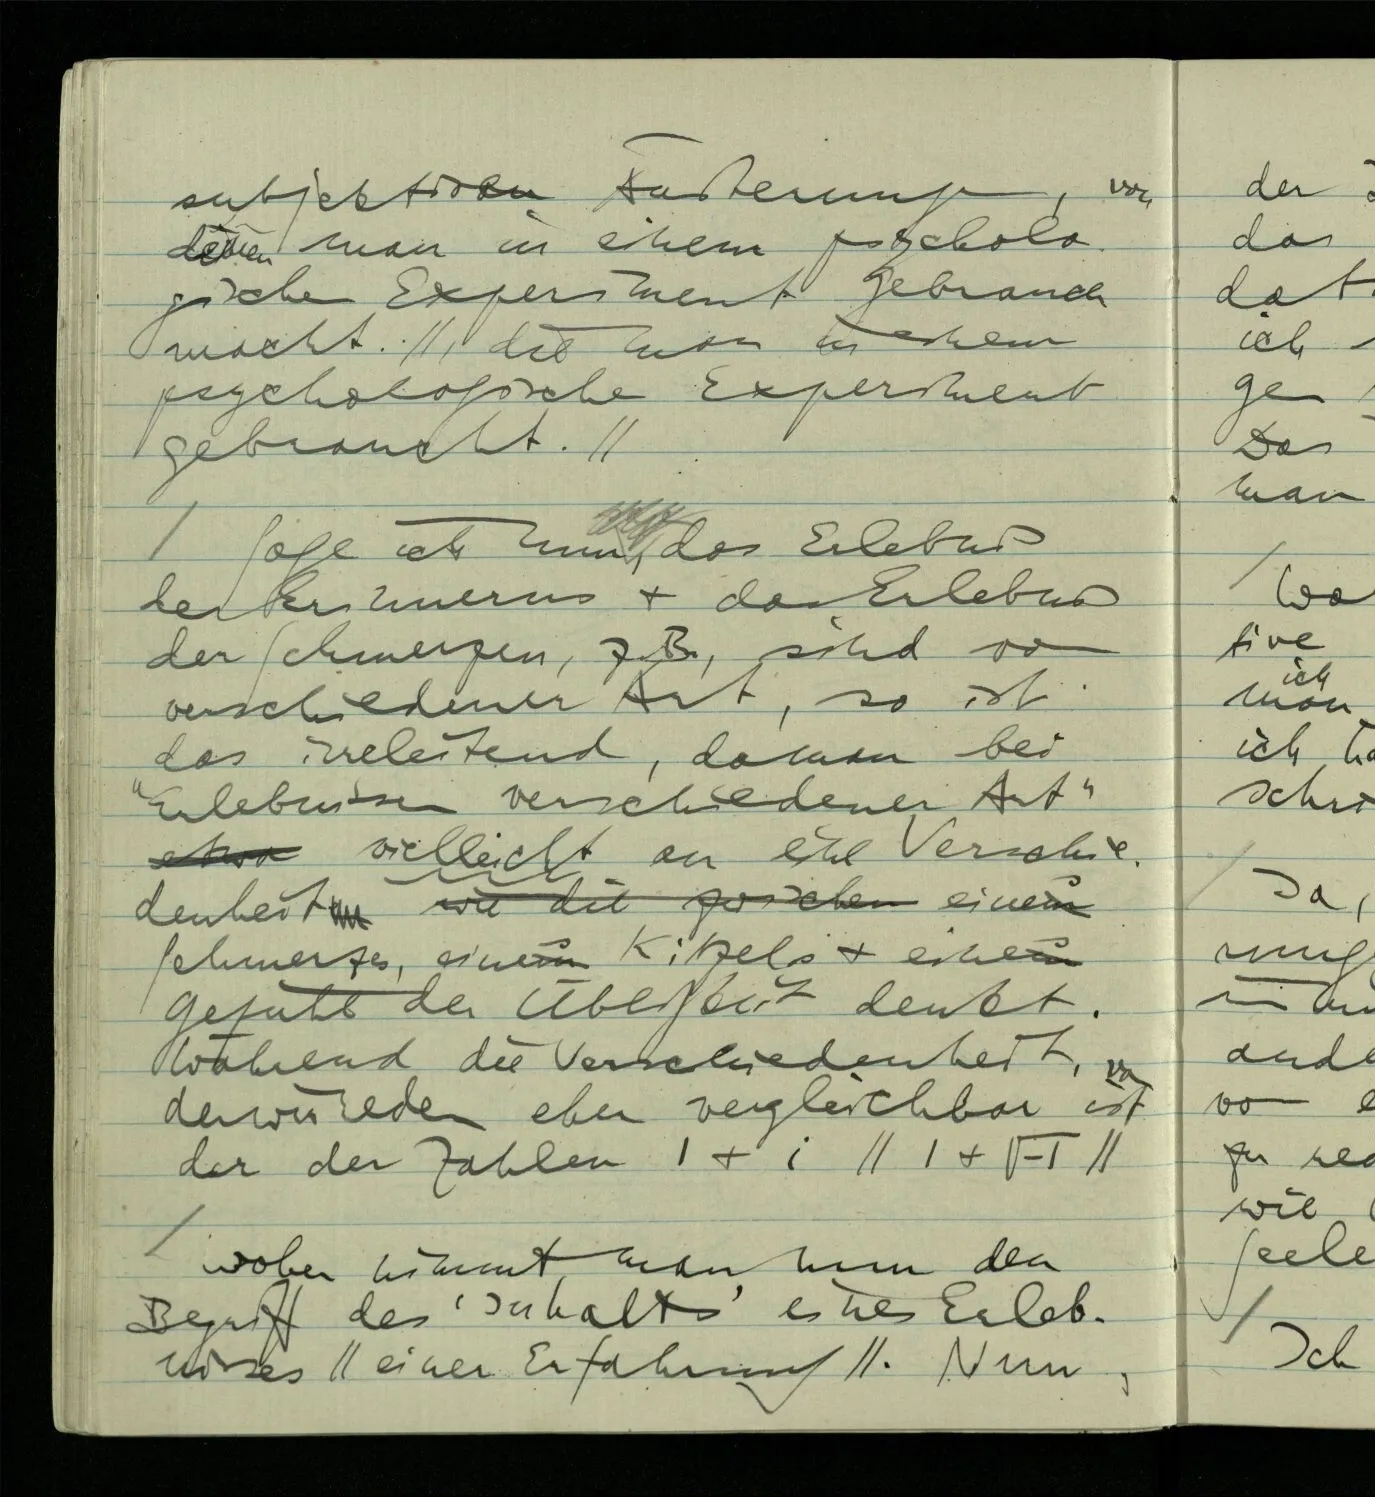 subjektiven Äußerung, von
denen man in einem psycholo
gischen Experiment Gebrauch
macht. //, die man in einem
psychologische Experiment
gebraucht. //
/ Sage ich nun, das Erlebnis
des Erinnerns + das Erlebnis
der Schmerzen, z.B., sind von
verschiedener Art, so ist
das irreleitend, da man bei
"Erlebnissen verschiedener Art"
etwa vielleicht an eine Verschie-
denheit wie die zwischen einem
Schmerzes, eines Kitzels + eines
Gefühls der Übelkeit denkt.
Während die Verschiedenheit, von
der wir reden eher vergleichbar ist
der der Zahlen 1 + i // 1 + √-1 //
/ Woher nimmt man nun den
Begriff des 'Inhalts' eines Erleb-
nisses // einer Erfahrung //. Nun,
der
das
ich
gen
Das
man
/
tive
ich
man
ich
/ Ja,
von
zu
wie
Seele
/
Ich